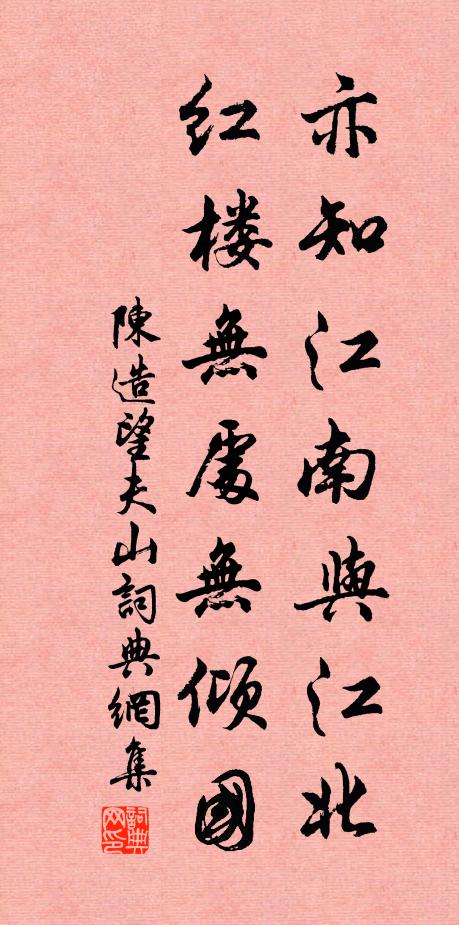 亦知江南與江北
紅楼無處無傾國
陳造望夫山詞典網集
詞典网印